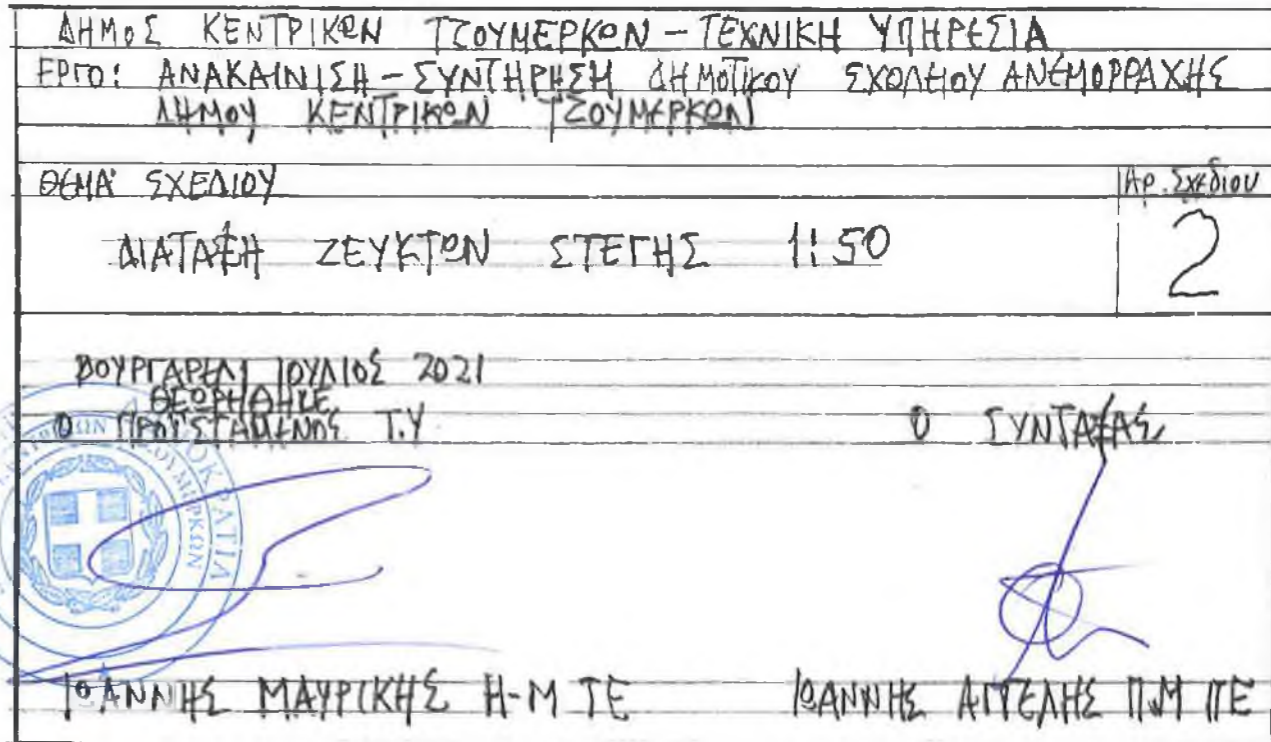 ΔΗΜΟΣ ΚΕΝΤΡΙΚΩΝ ΤΖΟΥΜΕΡΚΩΝ – ΤΕΧΝΙΚΗ ΥΠΗΡΕΣΙΑ
ΕΡΓΟ: ΑΝΑΚΑΙΝΙΣΗ – ΣΥΝΤΗΡΗΣΗ ΔΗΜΟΤΙΚΟΥ ΣΧΟΛΗΟΥ ΑΝΕΜΟΡΡΑΧΗΣ
ΔΗΜΟΥ ΚΕΝΤΡΙΚΩΝ ΤΖΟΥΜΕΡΚΩΝ
ΘΕΜΑ ΣΧΕΔΙΟΥ
Αρ. Σχεδίου
ΔΙΑΤΑΞΗ ΖΕΥΚΤΩΝ ΣΤΕΓΗΣ 1:50
2
ΒΟΥΡΓΑΡΕΛΙ ΙΟΥΛΙΟΣ 2021
ΘΕΩΡΗΘΗΚΕ
Ο ΠΡΟΪΣΤΑΜΕΝΟΣ Τ.Υ
Ο ΣΥΝΤΑΞΑΣ
ΤΖΟΥΜΕΡΚΩΝ
ΙΩΑΝΝΗΣ ΜΑΥΡΙΚΗΣ Η-Μ ΤΕ
ΙΩΑΝΝΗΣ ΑΓΓΕΛΗΣ Π.Μ ΠΕ